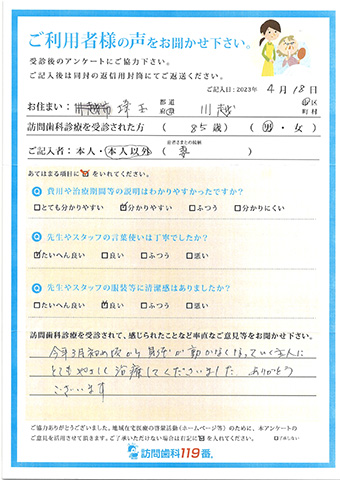 ご利用者様の声をお聞かせ下さい。
受診後のアンケートにご協力下さい。
ご記入後は同封の返信用封筒にてご返送ください。
ご記入日:2023年 4月 18日
お住まい: 埼玉 都道府県 川越 市区町村
訪問歯科診療を受診された方 ( 85歳) ( 男・女 )
ご記入者:本人・本人以外 ( 妻 )
あてはまる項目に☑をいれてください。
Q 費用や治療期間等の説明はわかりやすかったですか?
□とても分かりやすい ☑分かりやすい □ふつう □分かりにくい
Q 先生やスタッフの言葉使いは丁寧でしたか?
☑たいへん良い □良い □ふつう □悪い
Q 先生やスタッフの服装等に清潔感はありましたか?
□たいへん良い ☑良い □ふつう □悪い
訪問歯科診療を受診されて、感じられたことなど率直なご意見等をお聞かせ下さい。
今年3月初め頃から が動かなくなっていく主人に
とてもやさしく治療してくださいました ありがとう
ございます
ご協力ありがとうございました。地域在宅医療の啓蒙活動(ホームページ等)のために、本アンケートの
ご意見を活用させて頂きます。ご了承いただけない場合は右記に☑を入れてください。 □了承しない
訪問歯科119番。